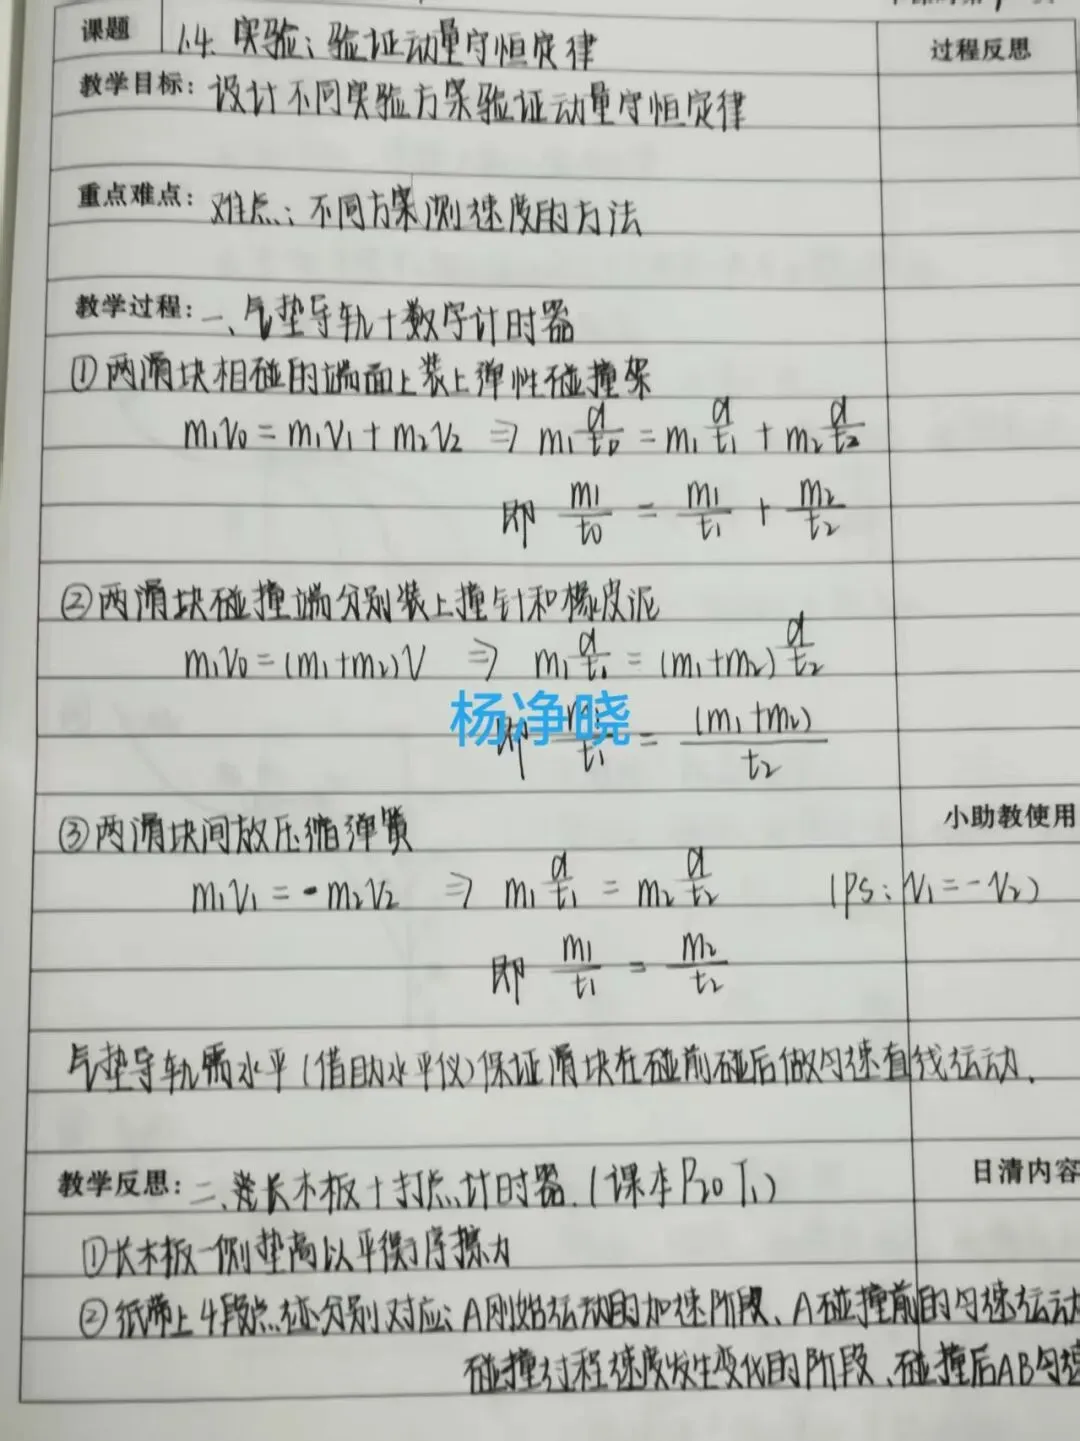 课题 1.4. 实验:验证动量守恒定律 过程反思
教学目标: 设计不同实验方案验证动量守恒定律
重点难点: 难点:不同方案测速度的方法
教学过程: 一、气垫导轨+数字计时器
①两滑块相碰的端面上装上弹性碰撞架
m₁v₀=m₁v₁+m₂v₂ ⇒ m₁d/t₀=m₁d/t₁+m₂d/t₂
即 m₁/t₀ = m₁/t₁ + m₂/t₂
②两滑块碰撞端分别装上撞针和橡皮泥
m₁v₀=(m₁+m₂)v ⇒ m₁d/t₁=(m₁+m₂)d/t₂
杨净晓
即 m₁/t₁ = (m₁+m₂)/t₂
小助教使用
③两滑块间放压缩弹簧
m₁v₁=-m₂v₂ ⇒ m₁d/t₁=m₂d/t₂ (ps:v₁=-v₂)
即 m₁/t₁ = m₂/t₂
气垫导轨需水平(借助水平仪)保证滑块在碰前碰后做匀速直线运动.
教学反思: 二、长木板+打点计时器.(课本P₂₀T₁) 日清内容
①长木板一侧垫高以平衡摩擦力
②纸带上4段点迹分别对应:A刚始运动的加速阶段、A碰撞前的匀速运动
碰撞过程速度发生变化的阶段、碰撞后AB匀速